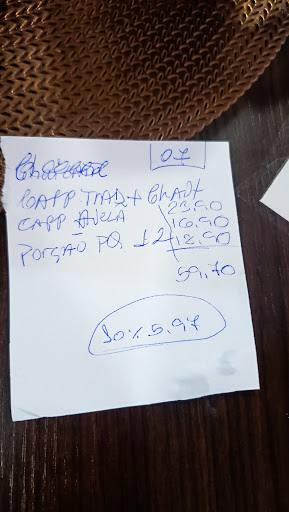 07
CAPP TRAD + Chant 23.90
CAPP AVELA 16.90
PORÇÃO PQ 12 18.90
59.70
10% 5.97